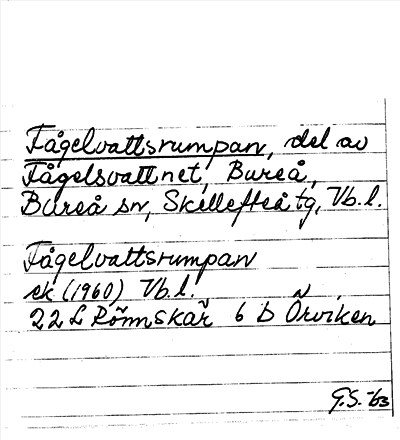 Fågelvattsrumpan, del av
Fågelsvattnet, Bureå,
Bureå sn, Skellefteå tg, Vb.l.
Fågelvattsrumpan
ek (1960) Vb.l.
22 L Rönnskär 6 b Örviken
G.S. -63